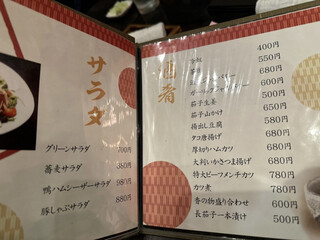 サラダ
グリーンサラダ
蕎麦サラダ
鴨ハムシーザーサラダ
豚しゃぶサラダ 880円
酒肴
400円
550円
680円
600円
500円
茄子生姜 580円
茄子山かけ 680円
揚出し豆腐 680円
タコ唐揚げ 680円
厚切りハムカツ 680円
大判いかさつま揚げ 680円
特大ビーフメンチカツ 780円
カツ煮 780円
香の物盛り合わせ 600円
長茄子一本漬け 500円